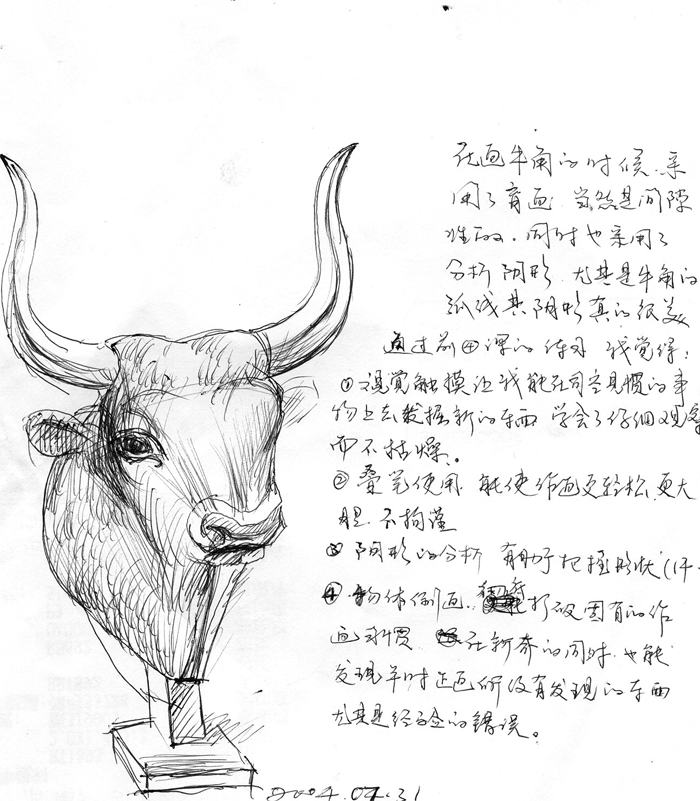 在画牛角的时候.采
用了盲画.当然是间隙
性的.同时也采用了
分析阴形.尤其是牛角的
弧线其阴形真的很美
通过前④课的练习 我觉得:
①视觉触摸让我能在司空见惯的事
物上去发掘新的东西 学会了仔细观察
而不枯燥。
②叠笔使用 能使作画更轻松.更大
胆.不拘谨
③阴形的分析 有助于把握形状
④物体倒画. 打破固有的作
画习惯 在新奇的同时.也能
发现平时正画所没有发现的东西
尤其是经验的错误。
2004.07.31